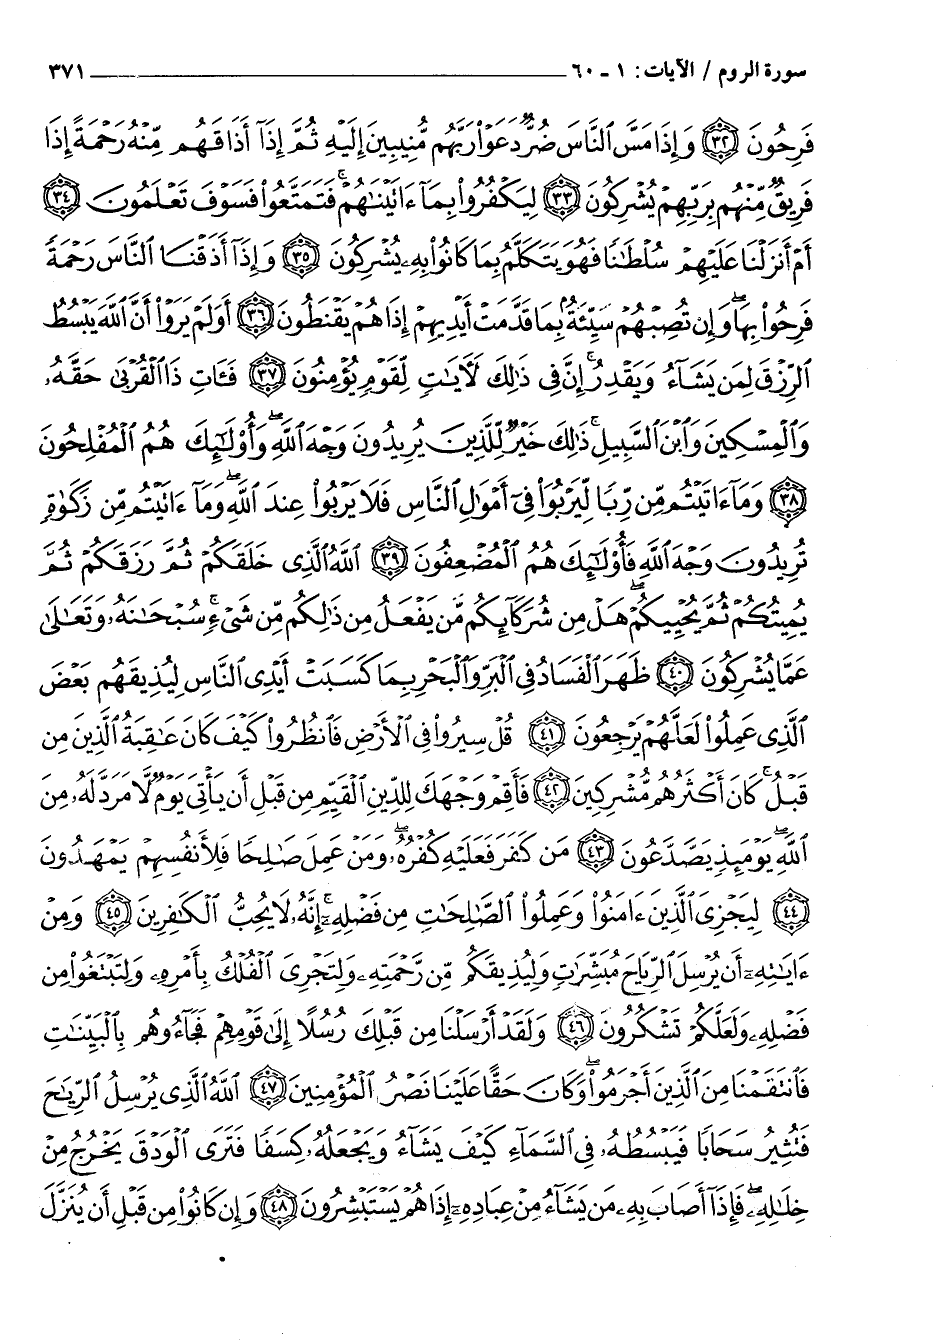 سورة الروم / الآيات : ١ ـ ٦٠ ٣٧١
فَرِحُونَ ﴿٣٢﴾ وَإِذَا مَسَّ ٱلنَّاسَ ضُرٌّ دَعَوْا۟ رَبَّهُم مُّنِيبِينَ إِلَيْهِ ثُمَّ إِذَآ أَذَاقَهُم مِّنْهُ رَحْمَةً إِذَا
فَرِيقٌ مِّنْهُم بِرَبِّهِمْ يُشْرِكُونَ ﴿٣٣﴾ لِيَكْفُرُوا۟ بِمَآ ءَاتَيْنَٰهُمْ ۚ فَتَمَتَّعُوا۟ فَسَوْفَ تَعْلَمُونَ ﴿٣٤﴾
أَمْ أَنزَلْنَا عَلَيْهِمْ سُلْطَٰنًا فَهُوَ يَتَكَلَّمُ بِمَا كَانُوا۟ بِهِۦ يُشْرِكُونَ ﴿٣٥﴾ وَإِذَآ أَذَقْنَا ٱلنَّاسَ رَحْمَةً
فَرِحُوا۟ بِهَا ۖ وَإِن تُصِبْهُمْ سَيِّئَةٌۢ بِمَا قَدَّمَتْ أَيْدِيهِمْ إِذَا هُمْ يَقْنَطُونَ ﴿٣٦﴾ أَوَلَمْ يَرَوْا۟ أَنَّ ٱللَّهَ يَبْسُطُ
ٱلرِّزْقَ لِمَن يَشَآءُ وَيَقْدِرُ ۚ إِنَّ فِى ذَٰلِكَ لَءَايَٰتٍ لِّقَوْمٍ يُؤْمِنُونَ ﴿٣٧﴾ فَـَٔاتِ ذَا ٱلْقُرْبَىٰ حَقَّهُۥ
وَٱلْمِسْكِينَ وَٱبْنَ ٱلسَّبِيلِ ۚ ذَٰلِكَ خَيْرٌ لِّلَّذِينَ يُرِيدُونَ وَجْهَ ٱللَّهِ ۖ وَأُو۟لَٰٓئِكَ هُمُ ٱلْمُفْلِحُونَ
﴿٣٨﴾ وَمَآ ءَاتَيْتُم مِّن رِّبًا لِّيَرْبُوَا۟ فِىٓ أَمْوَٰلِ ٱلنَّاسِ فَلَا يَرْبُوا۟ عِندَ ٱللَّهِ ۖ وَمَآ ءَاتَيْتُم مِّن زَكَوٰةٍ
تُرِيدُونَ وَجْهَ ٱللَّهِ فَأُو۟لَٰٓئِكَ هُمُ ٱلْمُضْعِفُونَ ﴿٣٩﴾ ٱللَّهُ ٱلَّذِى خَلَقَكُمْ ثُمَّ رَزَقَكُمْ ثُمَّ
يُمِيتُكُمْ ثُمَّ يُحْيِيكُمْ ۖ هَلْ مِن شُرَكَآئِكُم مَّن يَفْعَلُ مِن ذَٰلِكُم مِّن شَىْءٍ ۚ سُبْحَٰنَهُۥ وَتَعَٰلَىٰ
عَمَّا يُشْرِكُونَ ﴿٤٠﴾ ظَهَرَ ٱلْفَسَادُ فِى ٱلْبَرِّ وَٱلْبَحْرِ بِمَا كَسَبَتْ أَيْدِى ٱلنَّاسِ لِيُذِيقَهُم بَعْضَ
ٱلَّذِى عَمِلُوا۟ لَعَلَّهُمْ يَرْجِعُونَ ﴿٤١﴾ قُلْ سِيرُوا۟ فِى ٱلْأَرْضِ فَٱنظُرُوا۟ كَيْفَ كَانَ عَٰقِبَةُ ٱلَّذِينَ مِن
قَبْلُ ۚ كَانَ أَكْثَرُهُم مُّشْرِكِينَ ﴿٤٢﴾ فَأَقِمْ وَجْهَكَ لِلدِّينِ ٱلْقَيِّمِ مِن قَبْلِ أَن يَأْتِىَ يَوْمٌ لَّا مَرَدَّ لَهُۥ مِنَ
ٱللَّهِ ۖ يَوْمَئِذٍ يَصَّدَّعُونَ ﴿٤٣﴾ مَن كَفَرَ فَعَلَيْهِ كُفْرُهُۥ ۖ وَمَنْ عَمِلَ صَٰلِحًا فَلِأَنفُسِهِمْ يَمْهَدُونَ
﴿٤٤﴾ لِيَجْزِىَ ٱلَّذِينَ ءَامَنُوا۟ وَعَمِلُوا۟ ٱلصَّٰلِحَٰتِ مِن فَضْلِهِۦٓ ۚ إِنَّهُۥ لَا يُحِبُّ ٱلْكَٰفِرِينَ ﴿٤٥﴾ وَمِنْ
ءَايَٰتِهِۦٓ أَن يُرْسِلَ ٱلرِّيَاحَ مُبَشِّرَٰتٍ وَلِيُذِيقَكُم مِّن رَّحْمَتِهِۦ وَلِتَجْرِىَ ٱلْفُلْكُ بِأَمْرِهِۦ وَلِتَبْتَغُوا۟ مِن
فَضْلِهِۦ وَلَعَلَّكُمْ تَشْكُرُونَ ﴿٤٦﴾ وَلَقَدْ أَرْسَلْنَا مِن قَبْلِكَ رُسُلًا إِلَىٰ قَوْمِهِمْ فَجَآءُوهُم بِٱلْبَيِّنَٰتِ
فَٱنتَقَمْنَا مِنَ ٱلَّذِينَ أَجْرَمُوا۟ ۖ وَكَانَ حَقًّا عَلَيْنَا نَصْرُ ٱلْمُؤْمِنِينَ ﴿٤٧﴾ ٱللَّهُ ٱلَّذِى يُرْسِلُ ٱلرِّيَٰحَ
فَتُثِيرُ سَحَابًا فَيَبْسُطُهُۥ فِى ٱلسَّمَآءِ كَيْفَ يَشَآءُ وَيَجْعَلُهُۥ كِسَفًا فَتَرَى ٱلْوَدْقَ يَخْرُجُ مِنْ
خِلَٰلِهِۦ ۖ فَإِذَآ أَصَابَ بِهِۦ مَن يَشَآءُ مِنْ عِبَادِهِۦٓ إِذَا هُمْ يَسْتَبْشِرُونَ ﴿٤٨﴾ وَإِن كَانُوا۟ مِن قَبْلِ أَن يُنَزَّلَ